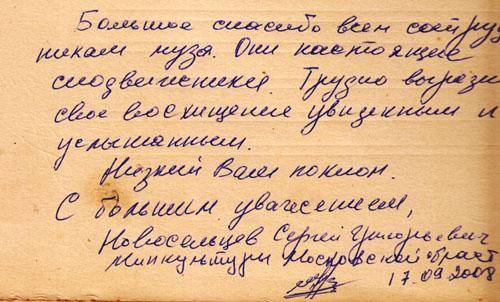 Большое спасибо всем сотруд
никам музея. Они настоящие
подвижники. Трудно вырази
свое восхищение увиденным и
услышанным.
Низкий Вам поклон.
С большим уважением,
Новосельцев Сергей Григорьевич
Минкультуры Московской област
17.09.2008